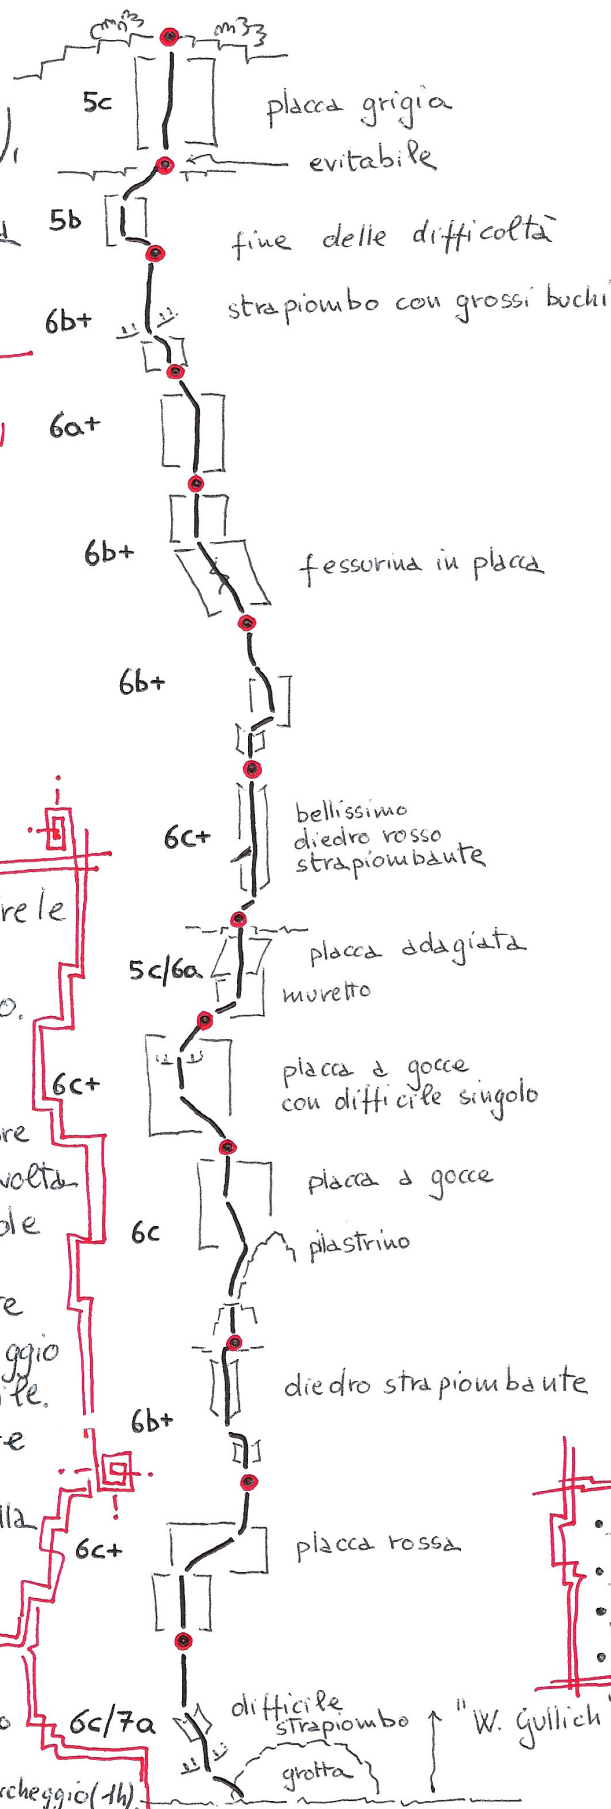 5c
placca grigia
evitabile
5b
fine delle difficoltà
6b+
strapiombo con grossi buchi
6a+
6b+
fessurina in placca
6b+
6c+
bellissimo
diedro rosso
strapiombante
placca adagiata
5c/6a
muretto
6c+
placca a gocce
con difficile singolo
placca a gocce
6c
pilastrino
diedro strapiombante
6b+
6c+
placca rossa
6c/7a
difficile
strapiombo
"W. Gullich"
grotta
rcheggio (1h).